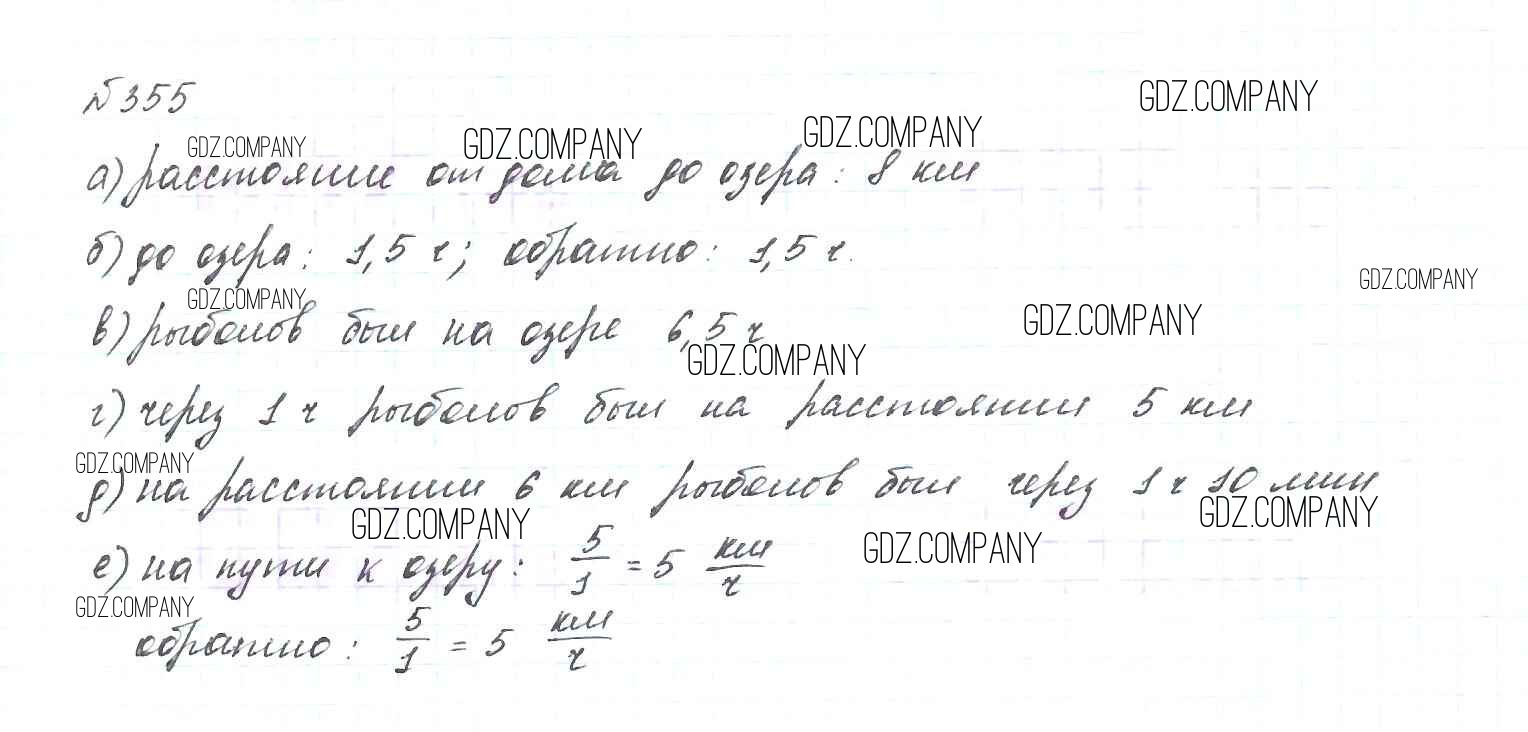 №355
GDZ.COMPANY
GDZ.COMPANY GDZ.COMPANY GDZ.COMPANY
а) расстояние от дома до озера: 8 км
б) до озера: 1,5 ч; обратно: 1,5 ч.
GDZ.COMPANY
GDZ.COMPANY GDZ.COMPANY
в) рыболов был на озере 6,5 ч
GDZ.COMPANY
г) через 1 ч рыболов был на расстоянии 5 км
GDZ.COMPANY
д) на расстоянии 6 км рыболов был через 1 ч 10 мин
GDZ.COMPANY GDZ.COMPANY GDZ.COMPANY
е) на пути к озеру: 5/1 = 5 км/ч
GDZ.COMPANY
обратно: 5/1 = 5 км/ч